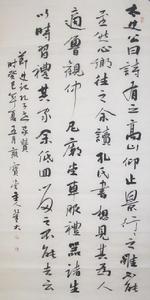 太史公曰詩有之高山仰止景行行止雖不能
至然心鄉往之余讀孔氏書想見其為人
適魯觀仲尼廟堂車服禮器諸生
以時習禮其家余低回留之不能去云
節史記孔子世家贊
時癸巳年夏五月